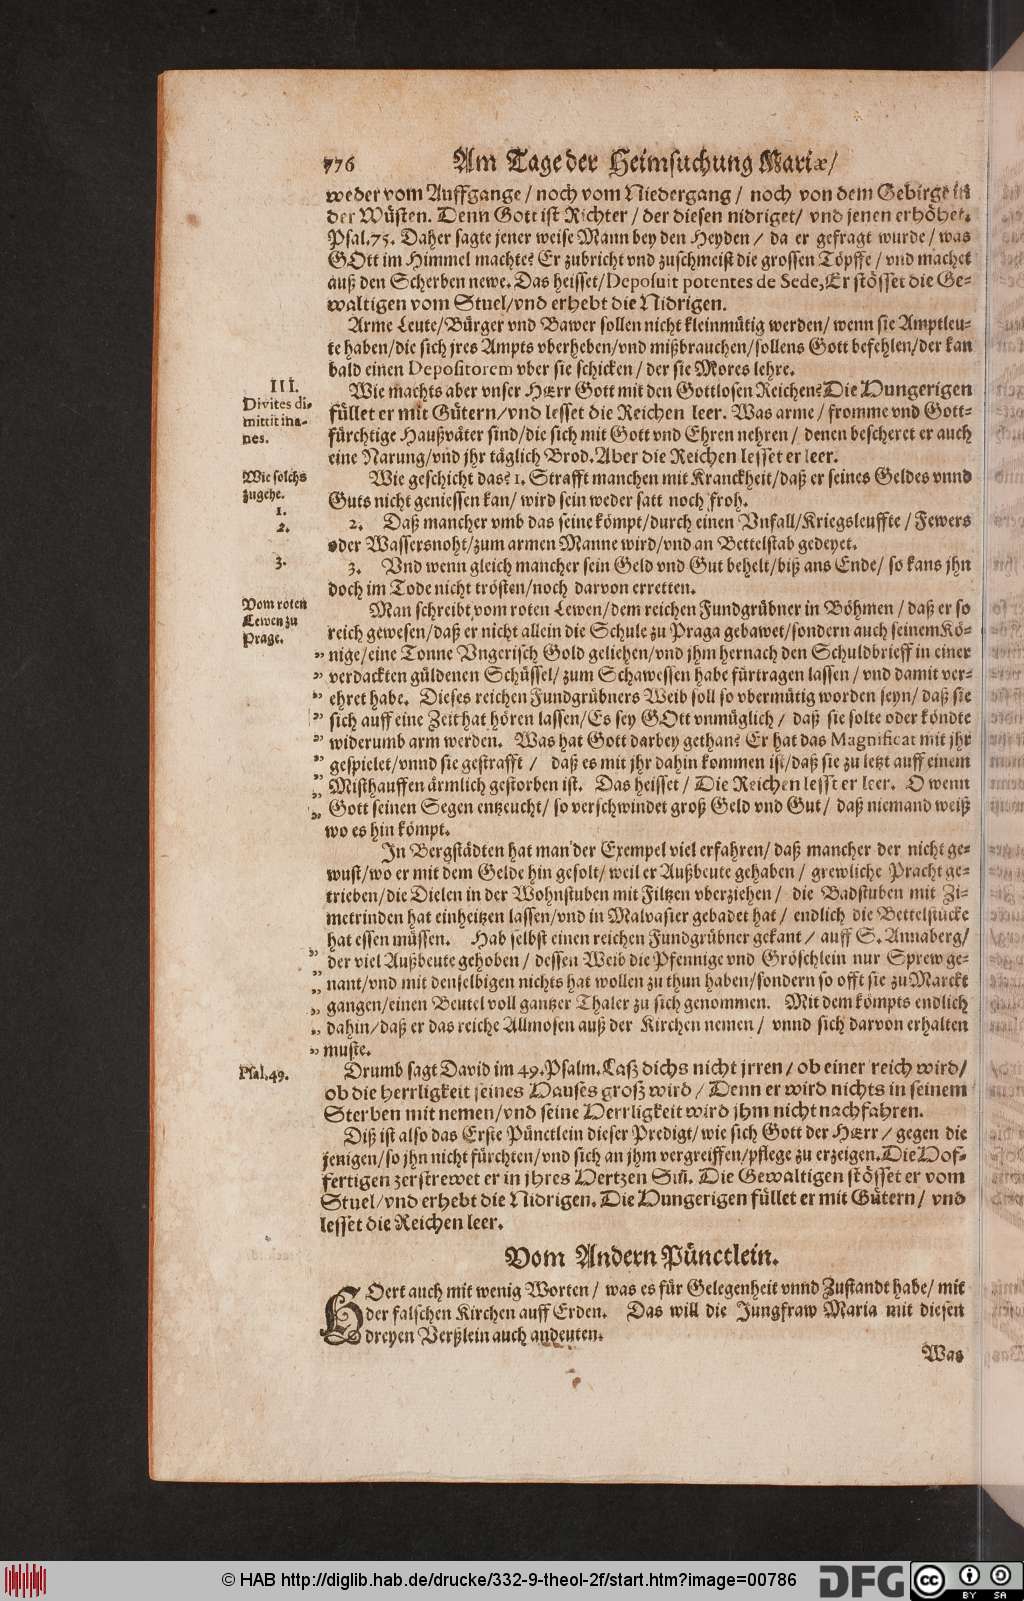 776 Am Tage der Heimsuchung Mariæ/
weder vom Auffgange/ noch vom Niedergang/ noch von dem Gebirge in
der Wüsten. Denn Gott ist Richter/ der diesen nidriget/ vnd jenen erhöhet.
Psal.75. Daher sagte jener weise Mann bey den Heyden/ da er gefragt wurde/ was
GOtt im Himmel machte? Er zubricht vnd zuschmeist die grossen Töpffe/ vnd machet
auß den Scherben newe. Das heisset/ Deposuit potentes de Sede, Er stösset die Ge-
waltigen vom Stuel/ vnd erhebt die Nidrigen.
Arme Leute/ Bürger vnd Bawer sollen nicht kleinmütig werden/ wenn sie Amptleu-
te haben/ die sich jres Ampts vberheben/ vnd mißbrauchen/ sollens Gott befehlen/ der kan
bald einen Depositorem vber sie schicken/ der sie Mores lehre.
III.
Divites di-
mittit ina-
nes.
Wie machts aber vnser HErr Gott mit den Gottlosen Reichen? Die Hungerigen
füllet er mit Gütern/ vnd lesset die Reichen leer. Was arme/ fromme vnd Gott-
fürchtige Haußväter sind/ die sich mit Gott vnd Ehren nehren/ denen bescheret er auch
eine Narung/ vnd jhr täglich Brod. Aber die Reichen lesset er leer.
Wie solchs
zugehe.
1.
Wie geschicht das? 1. Strafft manchen mit Kranckheit/ daß er seines Geldes vnnd
Guts nicht geniessen kan/ wird sein weder satt noch froh.
2.
2. Daß mancher vmb das seine kömpt/ durch einen Vnfall/ Kriegsleuffte/ Fewers
oder Wassersnoht/ zum armen Manne wird/ vnd an Bettelstab gedeyet.
3.
3. Vnd wenn gleich mancher sein Geld vnd Gut behelt/ biß ans Ende/ so kans jhn
doch im Tode nicht trösten/ noch darvon erretten.
Vom roten
Lewen zu
Prage.
Man schreibt vom roten Lewen/ dem reichen Fundgrübner in Böhmen/ daß er so
reich gewesen/ daß er nicht allein die Schule zu Praga gebawet/ sondern auch seinem Kö-
nige/ eine Tonne Vngerisch Gold geliehen/ vnd jhm hernach den Schuldbrieff in einer
verdackten güldenen Schüssel/ zum Schawessen habe fürtragen lassen/ vnd damit ver-
ehret habe. Dieses reichen Fundgrübners Weib soll so vbermütig worden seyn/ daß sie
sich auff eine Zeit hat hören lassen/ Es sey GOtt vnmüglich/ daß sie solte oder köndte
widerumb arm werden. Was hat Gott darbey gethan? Er hat das Magnificat mit jhr
gespielet/ vnnd sie gestrafft/ daß es mit jhr dahin kommen ist/ daß sie zu letzt auff einem
Misthauffen ärmlich gestorben ist. Das heisset/ Die Reichen lesst er leer. O wenn
Gott seinen Segen entzeucht/ so verschwindet groß Geld vnd Gut/ daß niemand weiß
wo es hin kömpt.
In Bergstädten hat man der Exempel viel erfahren/ daß mancher der nicht ge-
wust/ wo er mit dem Gelde hin gesolt/ weil er Außbeute gehaben/ grewliche Pracht ge-
trieben/ die Dielen in der Wohnstuben mit Filtzen vberziehen/ die Badstuben mit Zi-
metrinden hat einheitzen lassen/ vnd in Malvasier gebadet hat/ endlich die Bettelstücke
hat essen müssen. Hab selbst einen reichen Fundgrübner gekant/ auff S. Annaberg/
der viel Außbeute gehoben/ dessen Weib die Pfennige vnd Gröschlein nur Sprew ge-
nant/ vnd mit denselbigen nichts hat wollen zu thun haben/ sondern so offt sie zu Marckt
gangen/ einen Beutel voll gantzer Thaler zu sich genommen. Mit dem kömpts endlich
dahin/ daß er das reiche Allmosen auß der Kirchen nemen/ vnnd sich darvon erhalten
muste.
Psal.49.
Drumb sagt David im 49. Psalm. Laß dichs nicht jrren/ ob einer reich wird/
ob die herrligkeit seines Hauses groß wird/ Denn er wird nichts in seinem
Sterben mit nemen/ vnd seine Herrligkeit wird jhm nicht nachfahren.
Diß ist also das Erste Pünctlein dieser Predigt/ wie sich Gott der HErr/ gegen die
jenigen/ so jhn nicht fürchten/ vnd sich an jhm vergreiffen/ pflege zu erzeigen. Die Hof-
fertigen zerstrewet er in jhres Hertzen Siñ. Die Gewaltigen stösset er vom
Stuel/ vnd erhebt die Nidrigen. Die Hungerigen füllet er mit Gütern/ vnd
lesset die Reichen leer.
Vom Andern Pünctlein.
HOert auch mit wenig Worten/ was es für Gelegenheit vnnd Zustandt habe/ mit
der falschen Kirchen auff Erden. Das will die Jungfraw Maria mit diesen
dreyen Verßlein auch andeuten.
Was
© HAB http://diglib.hab.de/drucke/332-9-theol-2f/start.htm?image=00786
DFG
cc BY SA